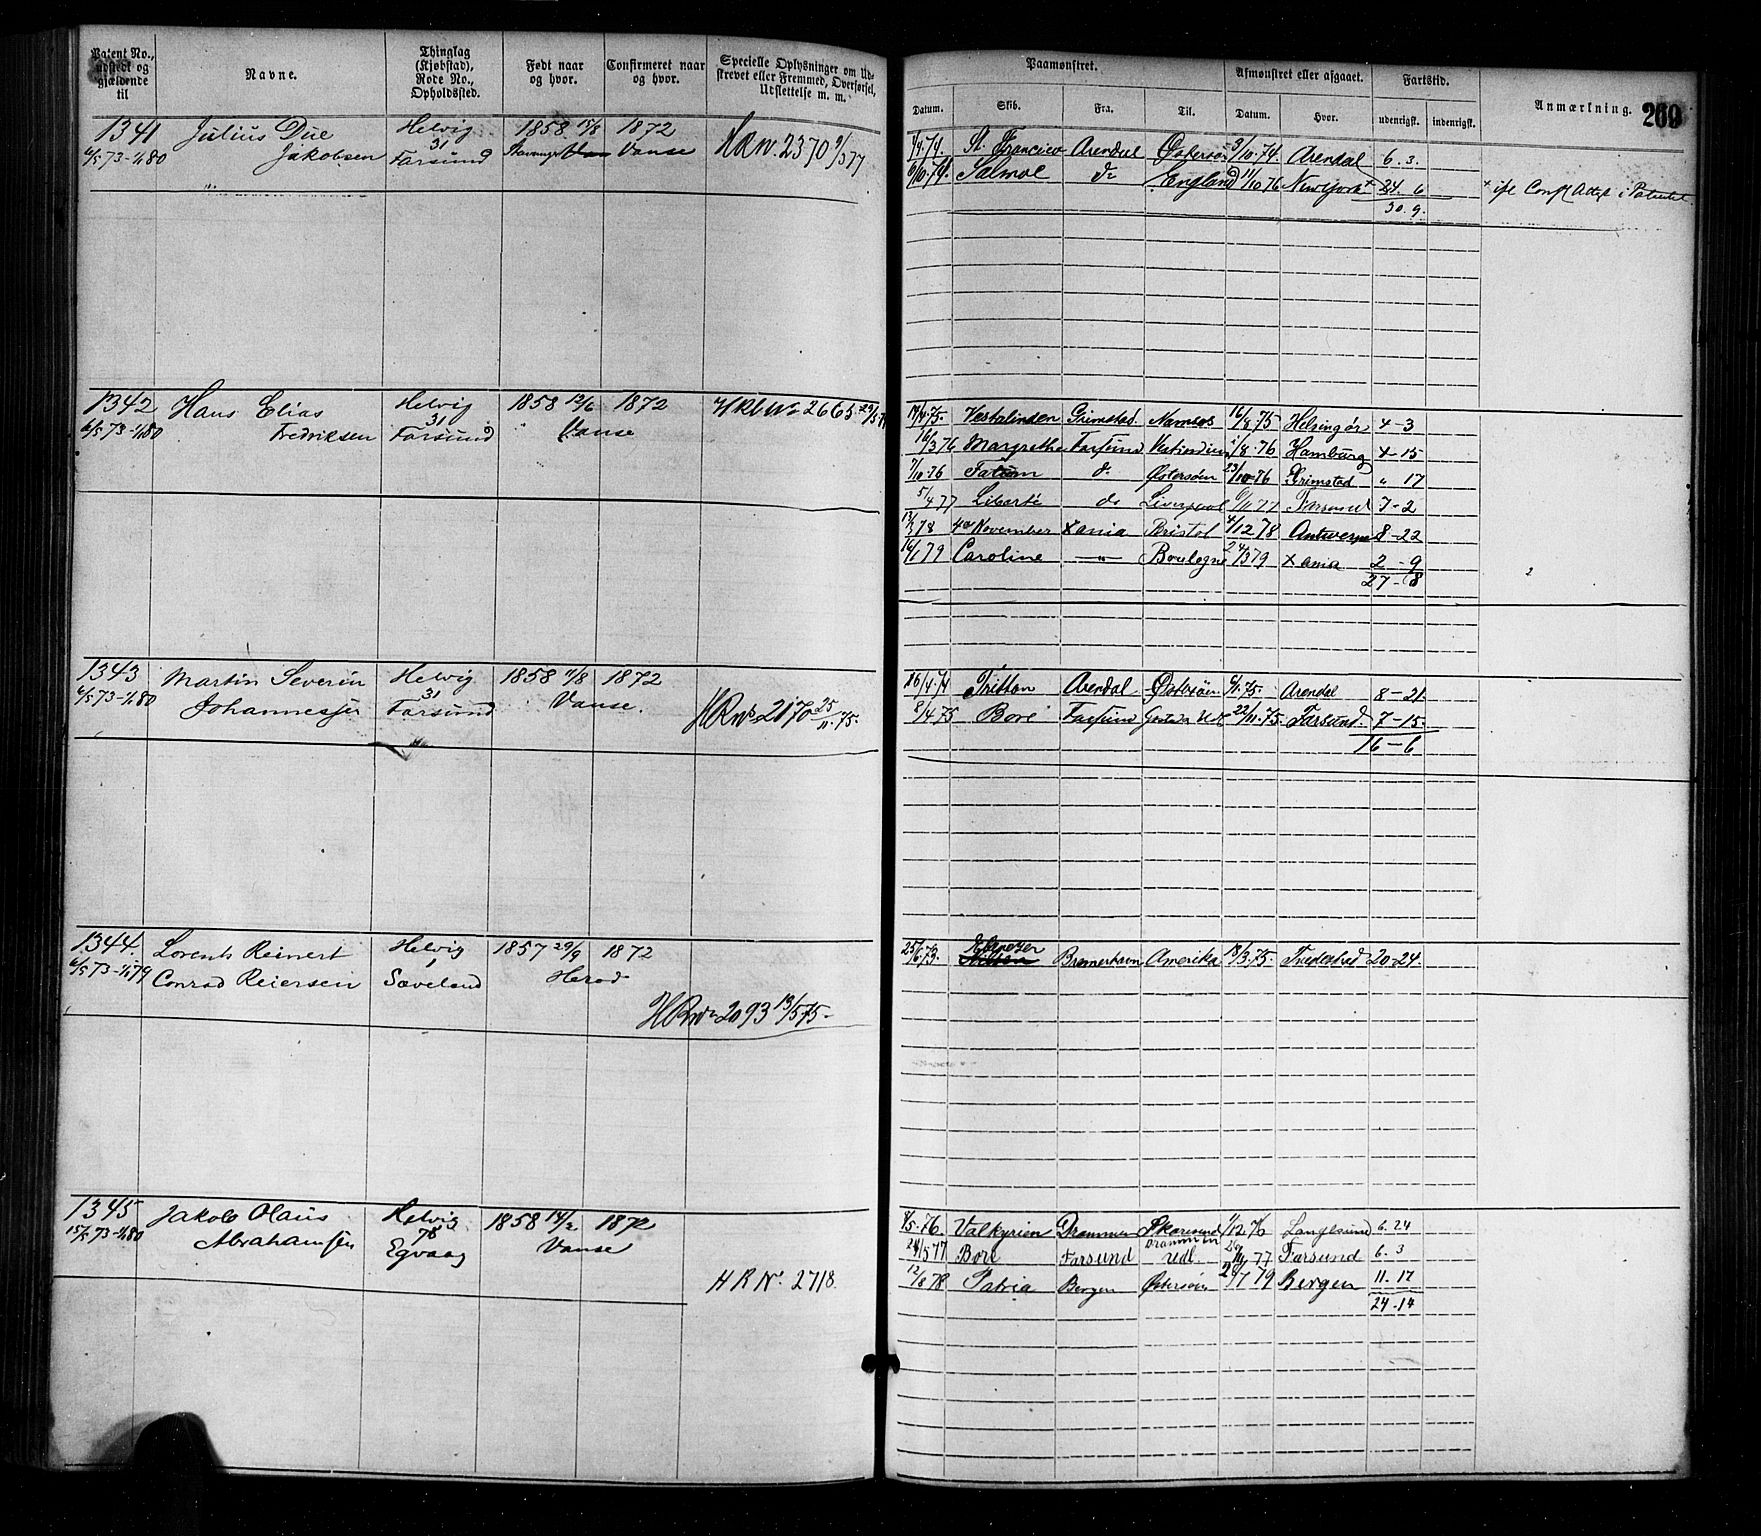 Patent No., udstedt og gjældende til
Navne.
Thinglag (Kjøbstad), Rode No., Opholdssted.
Født naar og hvor.
Confirmeret naar og hvor.
Specielle Oplysninger om Udskrevet eller Fremmed, Overførsel, Udslettelse m. m.
Paamønstret.
Afmønstret eller afgaaet.
Fartstid.
Anmærkning.
269
Datum.
Skib.
Fra.
Til.
Datum.
Hvor.
udenrigsk.
indenrigsk.
1341 Julius Due Helvig 1858 15/8 1872 HRN. 2370 9/5 77
6/5 73-1/1 80 Jakobsen 31 Farsund Stavanger Vanse
4/4.74. St. Francisco Arendal Østersøn 3/10.74. Arendal 6.3.
6/10.74. Salmoe do England 11/10 76 Newyork + 24.6
30.9.
1342 Hans Elias Helvig 1858 12/6 1872 HRN. 2665
6/5 73-1/1 80 Fredriksen 31 Farsund Vanse
17/4.75. Vestalinden Grimstad. Namsos 16/8.75 Helsingör 4-3
16/3 76 Margrethe Farsund Vestindien /8.76 Hamburg 4-15
7/10.76 Fatum do Østersøn 23/10.76 Grimstad " 17
5/4 77 Liberté do Liverpool 6/11 77 Farsund 7-2
78 4de November Xania Bristol 4/12 78 Antwerpen 8-22
16/1 79 Caroline — " — Boulogne 24/3 79 Xania 2-9
27-8
1343 Martin Severin Helvig 1858 11/8 1872
6/5 73-1/1 80 Johannessen 31 Farsund Vanse.
HRNo 2170 25/11.75.
16/4.74 Tritton Arendal Østersøen 6/1.75. Arendal 8-21.
8/4 75 Bore Farsund Udl 22/11.75. Farsund. 7-15.
16-6
1344. Lorents Reinert Helvig 1857 29/9 1872
6/5 73-1/1 79 Conrad Reiersen 1 Sæveland Herad
HRNo 2093 13/5 75-
25/6 73. Ebenezer Bremerhavn Amerika 19/3.75. Fredrikstad 20-24.
1345 Jakob Olaus Helvig 1858 14/2 1872
15/5 73-1/1 80 Abrahamsen 76 Egvaag Vanse
HRNo. 2718.
9/5.76. Valkyrien Drammen 1/12 76 Langesund 6.24
24/5 77 Bore Farsund Drammen Udl. 77 Farsund 6.3
12/6 78 Patria Bergen Østersøen 79 Bergen 11.17
24-14